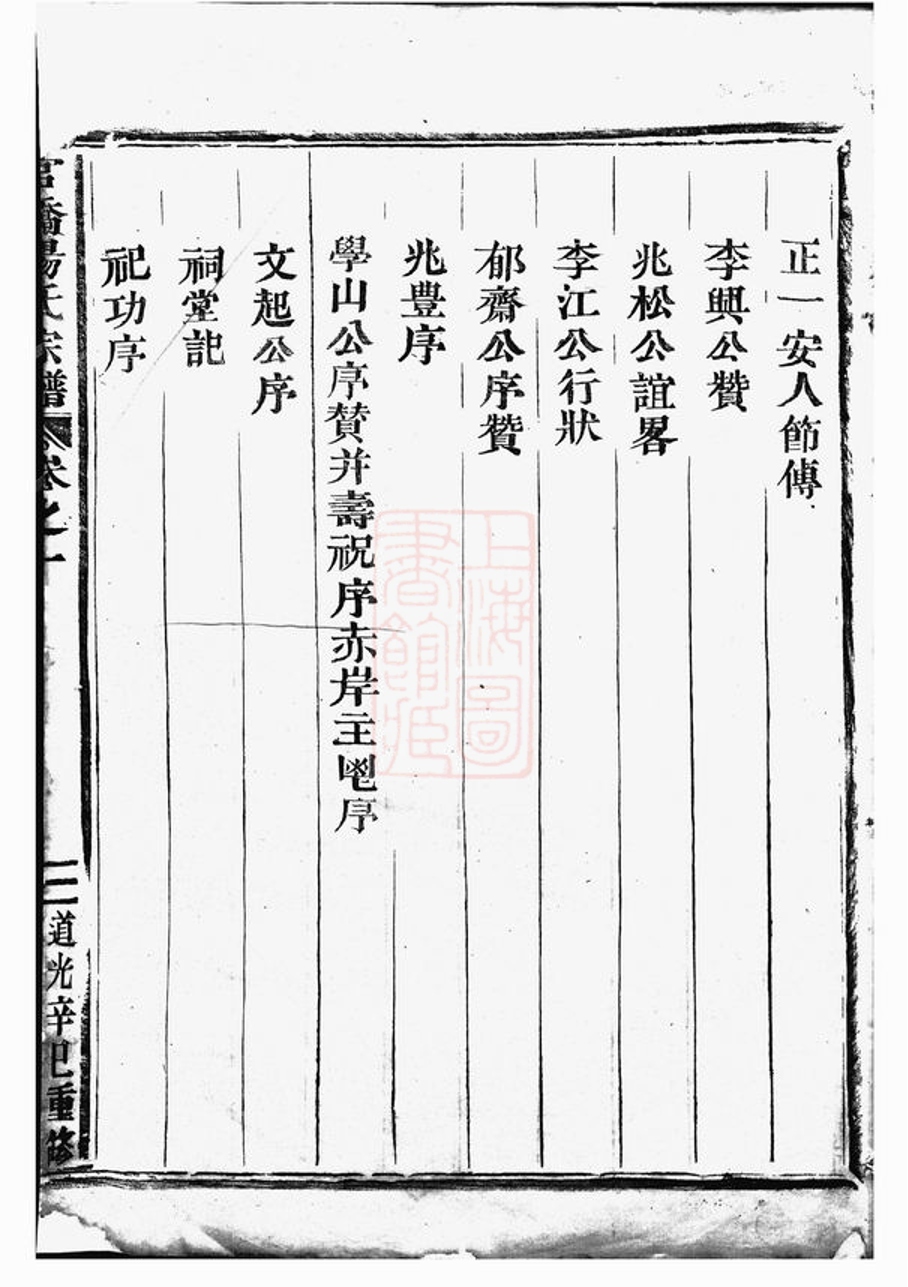 正一安人節傳
李興公贊
兆松公誼畧
李江公行狀
郁齋公序贊
兆豊序
學山公序贊并壽祝序赤岸主鬯序
文起公序
祠堂記
祀功序
宗譜 卷之一
二 道光辛巳重修
上海圖書館藏